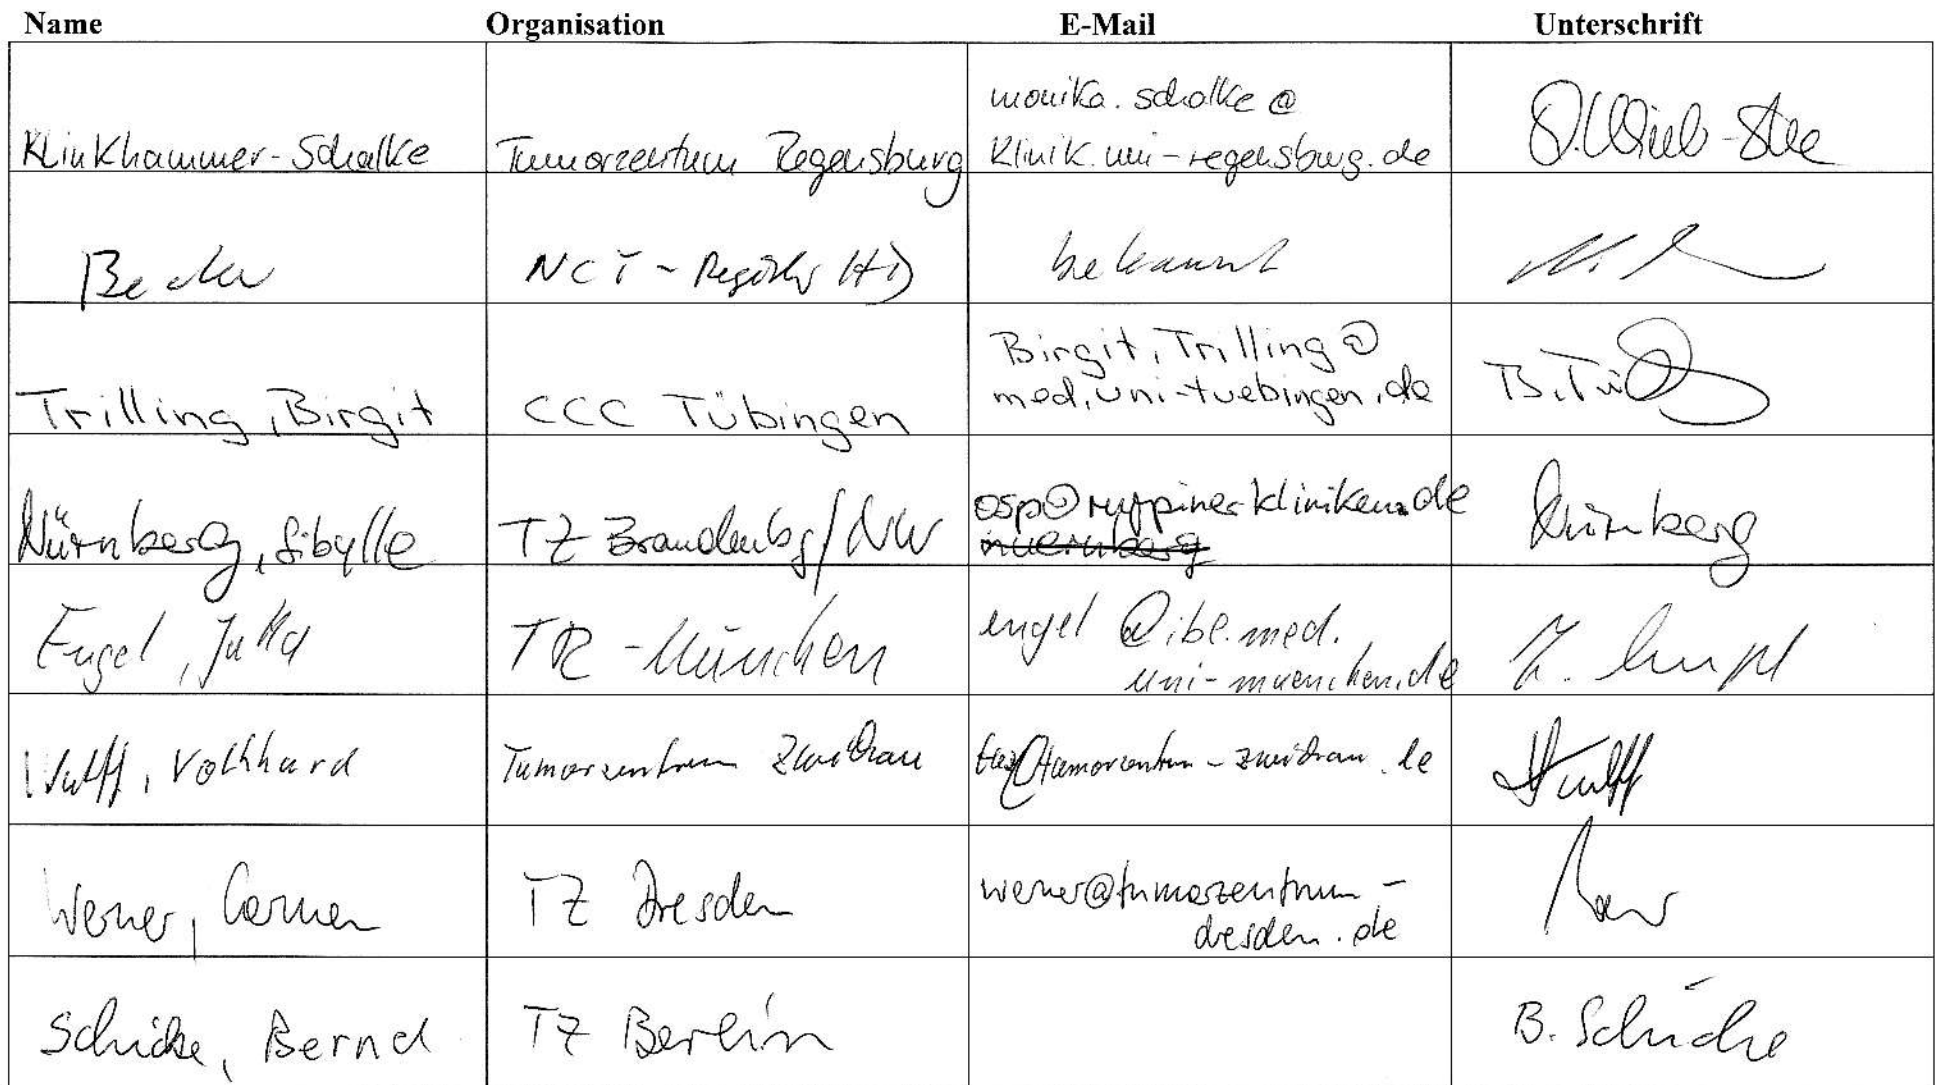 Name Organisation E-Mail Unterschrift
monika.schalke@
Klinkhammer-Schalke Tumorzentrum Regensburg klinik.uni-regensburg.de
Becker NCT - Register HD bekannt
Birgit.Trilling@
Trilling, Birgit CCC Tübingen med.uni-tuebingen.de B.
Nürnberg, Sibylle TZ Brandenbg/NW osp@ruppiner-kliniken.de Nürnberg
nuernberg
Engel, Jutta TR-München engel@ibe.med. J. Engel
uni-muenchen.de
Wulff, Volkhard Tumorzentrum Zwickau tuz@tumorzentrum-zwickau.de Wulff
Werner, Carmen TZ Dresden werner@tumorzentrum-
dresden.de
Schicke, Bernd TZ Berlin B. Schicke